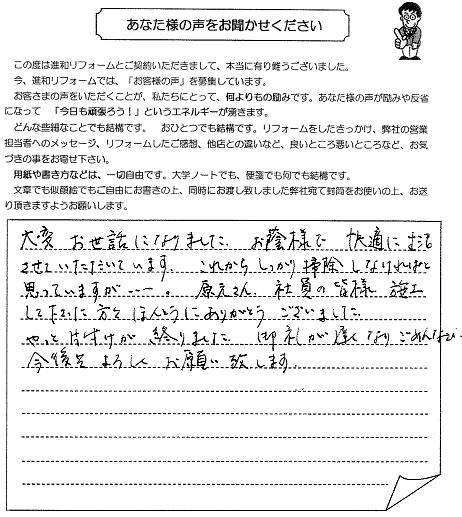 あなた様の声をお聞かせください
この度は進和リフォームとご契約いただきまして、本当に有り難うございました。
今、進和リフォームでは、「お客様の声」を募集しています。
お客さまの声をいただくことが、私たちにとって、何よりもの励みです。あなた様の声が励みや反省
になって　「今日も頑張ろう！」というエネルギーが湧きます。
どんな些細なことでも結構です。　おひとつでも結構です。リフォームをしたきっかけ、弊社の営業
担当者へのメッセージ、リフォームしたご感想、他店との違いなど、良いところ悪いところなど、お気
づきの事をお寄せ下さい。
用紙や書き方などは、一切自由です。大学ノートでも、便箋でも何でも結構です。
文章でも似顔絵でもご自由にお書きの上、同時にお渡し致しました弊社宛て封筒をお使いの上、お送
り頂きますようお願いします。
大変 お世話になりました お陰様で 快適に生活
させていただいています。 これからしっかり掃除しなければと
思っていますが----。 原元さん、社員の皆様 施工
して下さった方々 ほんとうにありがとう ございました
やっと片付けが 終りました 御礼が遅くなりごめんなさい
今後もよろしく お願い致します.